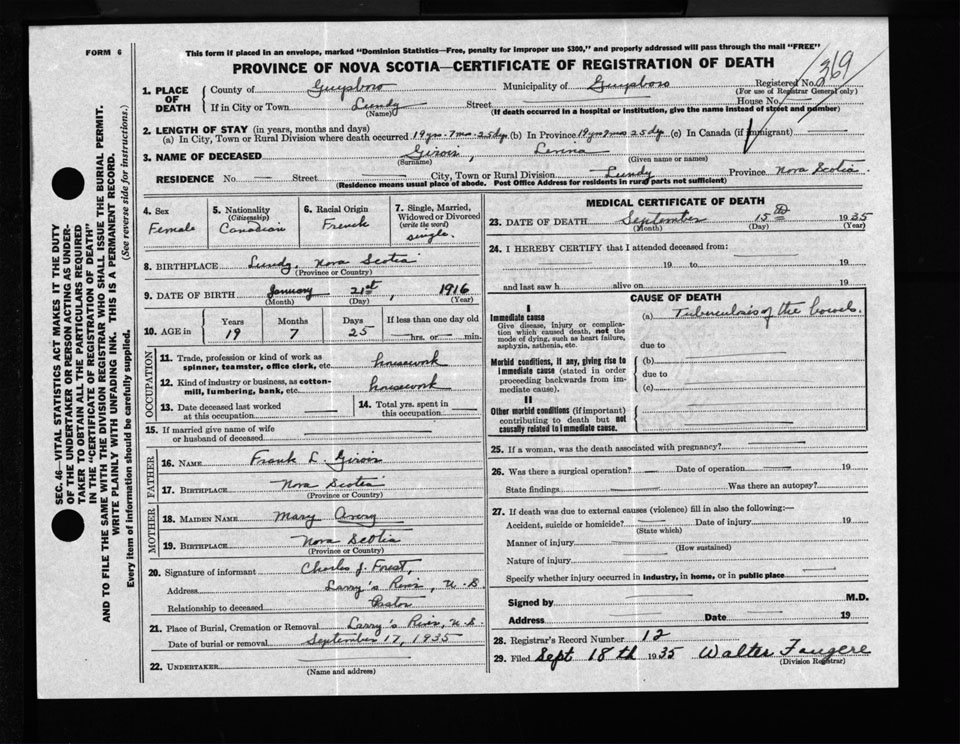 FORM 6
This form if placed in an envelope, marked "Dominion Statistics—Free, penalty for improper use $300," and properly addressed will pass through the mail "FREE"
PROVINCE OF NOVA SCOTIA—CERTIFICATE OF REGISTRATION OF DEATH
369
1. PLACE OF DEATH
County of Guysboro Municipality of Guysboro Registered No.
(For use of Registrar General only)
If in City or Town Lundy Street House No.
(Name) (If death occurred in a hospital or institution, give the name instead of street and number)
2. LENGTH OF STAY (in years, months and days)
(a) In City, Town or Rural Division where death occurred 19 yrs. 7 mos. 25 dys. (b) In Province 19 yrs 7 mos 25 dys. (c) In Canada (if immigrant)
3. NAME OF DECEASED Girois, Levina
(Surname) (Given name or names)
RESIDENCE No. Street City, Town or Rural Division Lundy Province Nova Scotia
(Residence means usual place of abode. Post Office Address for residents in rural parts not sufficient)
4. Sex
Female
5. Nationality
(Citizenship)
Canadian
6. Racial Origin
French
7. Single, Married, Widowed or Divorced
(write the word)
single.
8. BIRTHPLACE Lundy, Nova Scotia
(Province or Country)
9. DATE OF BIRTH January 21st, 1916
(Month) (Day) (Year)
10. AGE in
Years Months Days If less than one day old
19 7 25 hrs. or min.
OCCUPATION
11. Trade, profession or kind of work as spinner, teamster, office clerk, etc. housework
12. Kind of industry or business, as cotton-mill, lumbering, bank, etc. housework
13. Date deceased last worked at this occupation
14. Total yrs. spent in this occupation
15. If married give name of wife or husband of deceased
FATHER
16. NAME Frank L. Girois
17. BIRTHPLACE Nova Scotia
(Province or Country)
MOTHER
18. MAIDEN NAME Mary Avery
19. BIRTHPLACE Nova Scotia
(Province or Country)
20. Signature of informant Charles J. Forest,
Address Larry's River, N. S.
Relationship to deceased Pastor
21. Place of Burial, Cremation or Removal Larry's River, N. S.
Date of burial or removal September 17, 1935
22. UNDERTAKER
(Name and address)
MEDICAL CERTIFICATE OF DEATH
23. DATE OF DEATH September 15th 1935
(Month) (Day) (Year)
24. I HEREBY CERTIFY that I attended deceased from:
19 to 19
and last saw h alive on 19
CAUSE OF DEATH
I
Immediate cause
Give disease, injury or complication which caused death, not the mode of dying, such as heart failure, asphyxia, asthenia, etc.
(a) Tuberculosis of the bowels.
due to
Morbid conditions, if any, giving rise to immediate cause (stated in order proceeding backwards from immediate cause).
(b)
due to
(c)
II
Other morbid conditions (if important) contributing to death but not causally related to immediate cause.
25. If a woman, was the death associated with pregnancy?
26. Was there a surgical operation? Date of operation 19
State findings Was there an autopsy?
27. If death was due to external causes (violence) fill in also the following:—
Accident, suicide or homicide? Date of injury 19
(State which)
Manner of injury
(How sustained)
Nature of injury
Specify whether injury occurred in industry, in home, or in public place
Signed by M.D.
Address Date 19
28. Registrar's Record Number 12
29. Filed Sept 18th 1935 Walter Faugere
(Division Registrar)
SEC. 46—VITAL STATISTICS ACT MAKES IT THE DUTY
OF THE UNDERTAKER OR PERSON ACTING AS UNDER-
TAKER TO OBTAIN ALL THE PARTICULARS REQUIRED
IN THE "CERTIFICATE OF REGISTRATION OF DEATH"
AND TO FILE THE SAME WITH THE DIVISION REGISTRAR WHO SHALL ISSUE THE BURIAL PERMIT.
WRITE PLAINLY WITH UNFADING INK. THIS IS A PERMANENT RECORD.
Every item of information should be carefully supplied. (See reverse side for instructions.)